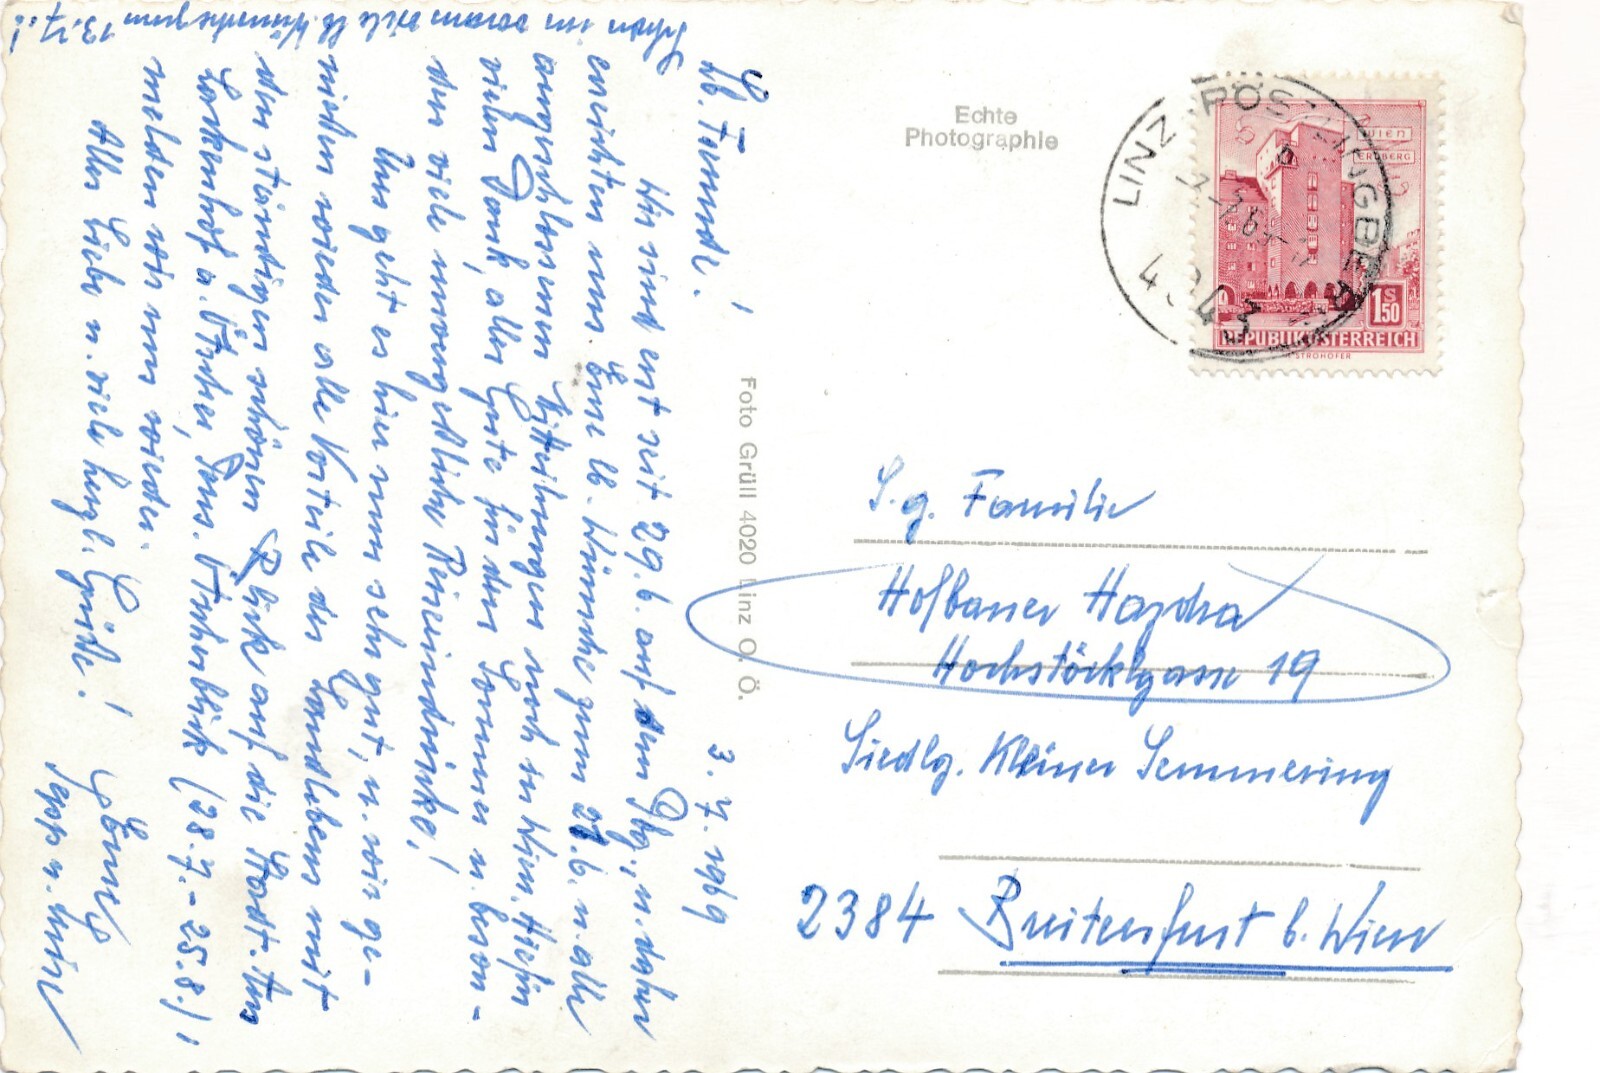 Lb. Freunde!
3. 7. 1969
Wir sind erst seit 29.6. auf dem Pbg., u. daher
erreichten uns Eure lb. Wünsche zum 27.6. u. alle
angeschlossenen Mitteilungen noch in Wien. Hiefür
vielen Dank, alles Gute für den Sommer u. beson-
ders viele unvergeßliche Reiseeindrücke!
Uns geht es hier nun sehr gut, u. wir ge-
nießen wieder alle Vorteile des Landlebens mit
dem ständigen schönen Blick auf die Stadt. Am
Lackenhof a. Ötscher, Pens. Ötscherblick (28.7. - 25.8.),
melden wir uns wieder.
Alles Liebe u. viele herzl. Grüße!
Eure
Sepp u.
Schon im voraus viele lb. Wünsche zum 13.7.!
Echte
Photographie
Foto Grüll 4020 Linz O. Ö.
LINZ-PÖSTLINGBERG
4043
WIEN
ERDBERG
1 S 50
REPUBLIK ÖSTERREICH
STROHOFER
S. g. Familie
Hofbauer Hazdra
Hochstöcklgasse 19
Siedlg. Kleiner Semmering
2384 Breitenfurt b. Wien